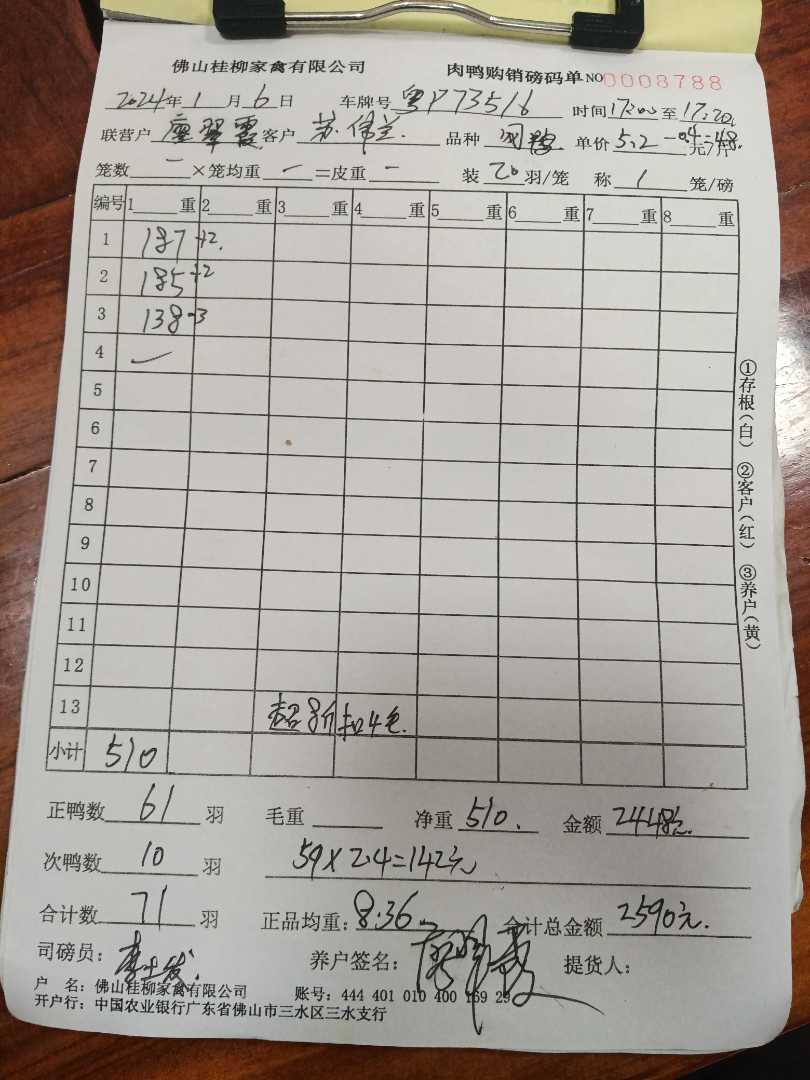 佛山桂柳家禽有限公司 肉鸭购销磅码单 NO 0008788
2024年1月6日 车牌号 粤P73516 时间 17:00至17:20
联营户 廖翠霞 客户 苏伟兰 品种 单价 5.2-0.4=4.8元/斤
笼数 一 ×笼均重 一 =皮重 一 装 20 羽/笼 称 1 笼/磅
编号 1 重 2 重 3 重 4 重 5 重 6 重 7 重 8 重
1 187+2.
2 185+2
3 138-3
4
5
6
7
8
9
10
11
12
13 超8斤扣4毛.
小计 510
正鸭数 61 羽 毛重 净重 510. 金额 2448元.
次鸭数 10 羽 59×2.4=142元
合计数 71 羽 正品均重: 8.36 合计总金额 2590元.
司磅员: 养户签名: 廖翠霞 提货人:
户 名: 佛山桂柳家禽有限公司 账号: 444 401 010 400 169 29
开户行: 中国农业银行广东省佛山市三水区三水支行
①存根(白) ②客户(红) ③养户(黄)